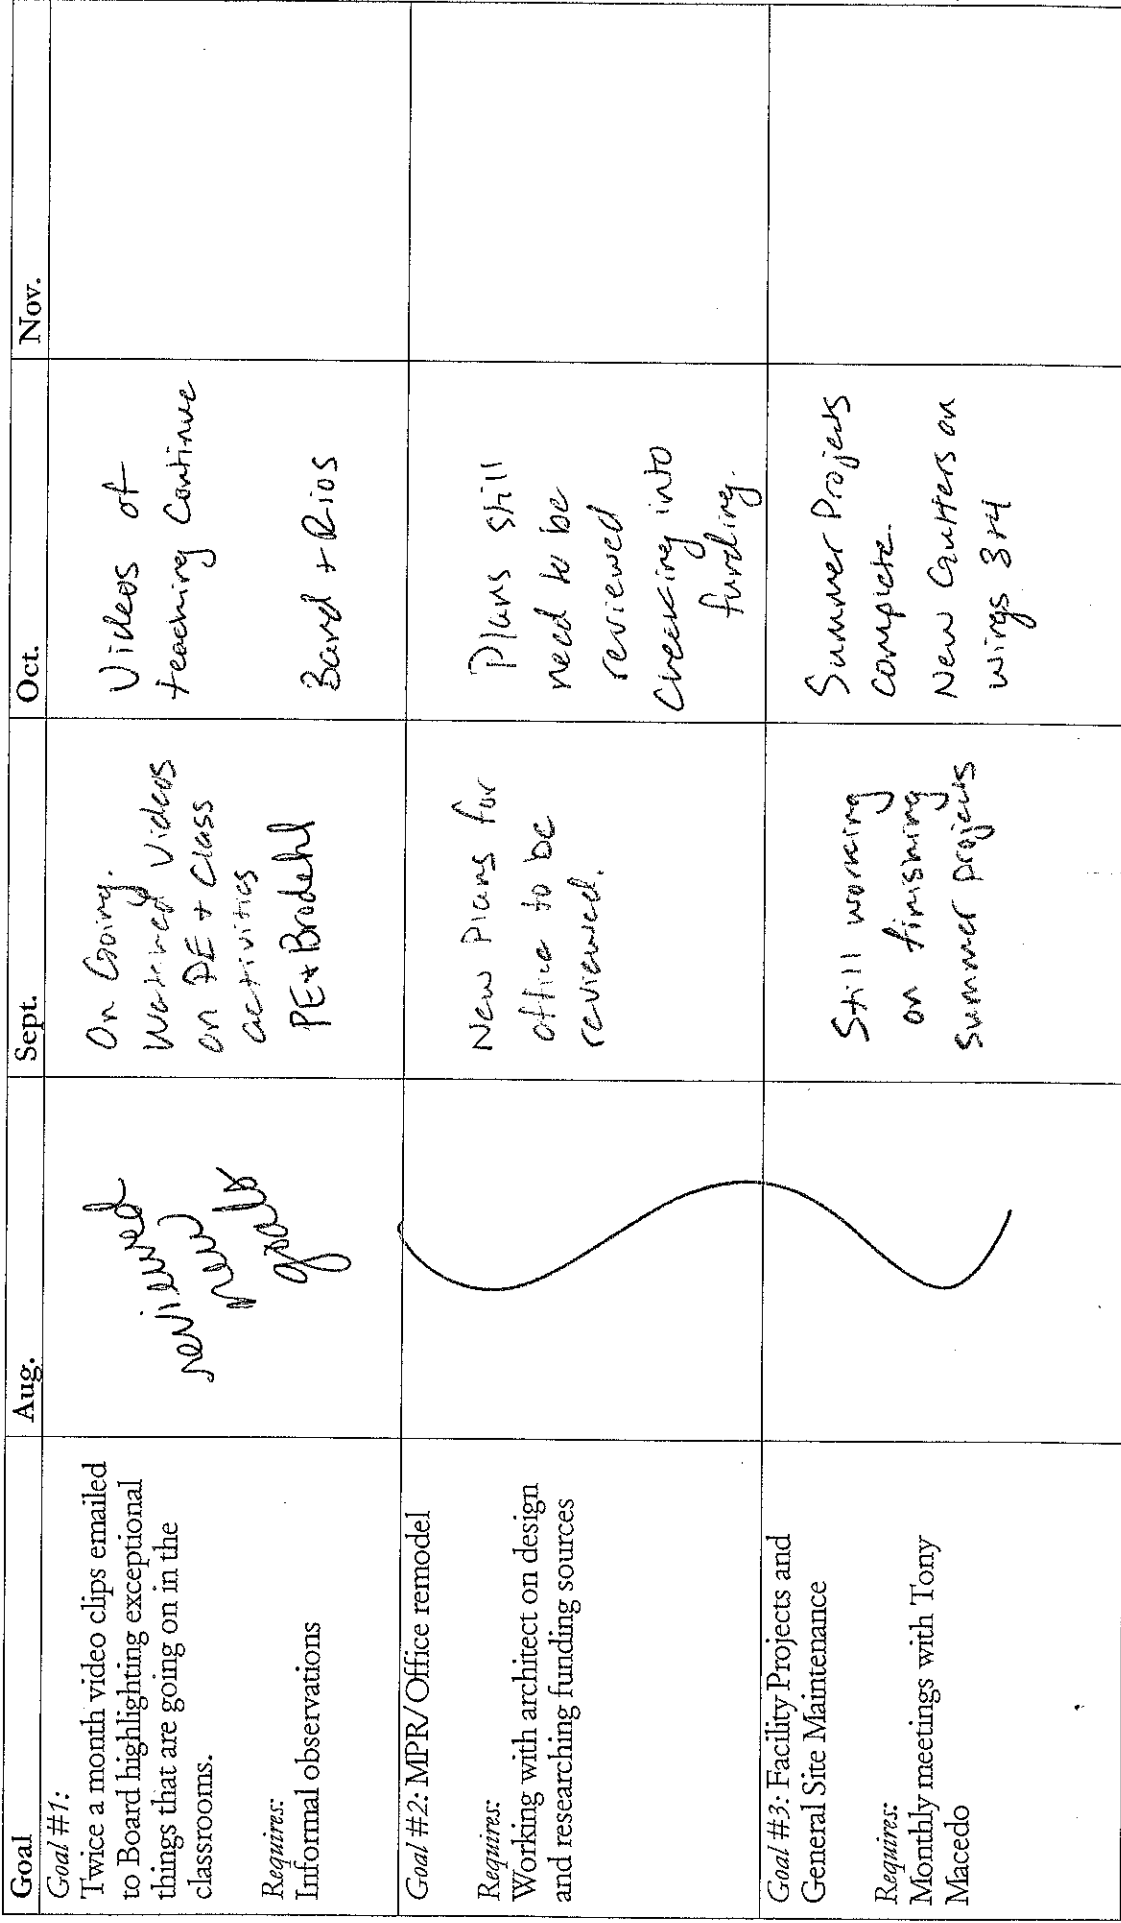 Goal
Aug.
Sept.
Oct.
Nov.
Goal #1:
Twice a month video clips emailed
to Board highlighting exceptional
things that are going on in the
classrooms.
Requires:
Informal observations
reviewed
new
goals
On Going.
Watched Videos
on PE + Class
activities
PE + Brodehl
Videos of
teaching Continue
Band + Rios
Goal #2: MPR/Office remodel
Requires:
Working with architect on design
and researching funding sources
New Plans for
office to be
reviewed.
Plans still
need to be
reviewed
Checking into
funding.
Goal #3: Facility Projects and
General Site Maintenance
Requires:
Monthly meetings with Tony
Macedo
Still working
on finishing
Summer projects
Summer Projects
complete.
New Gutters on
wings 3+4